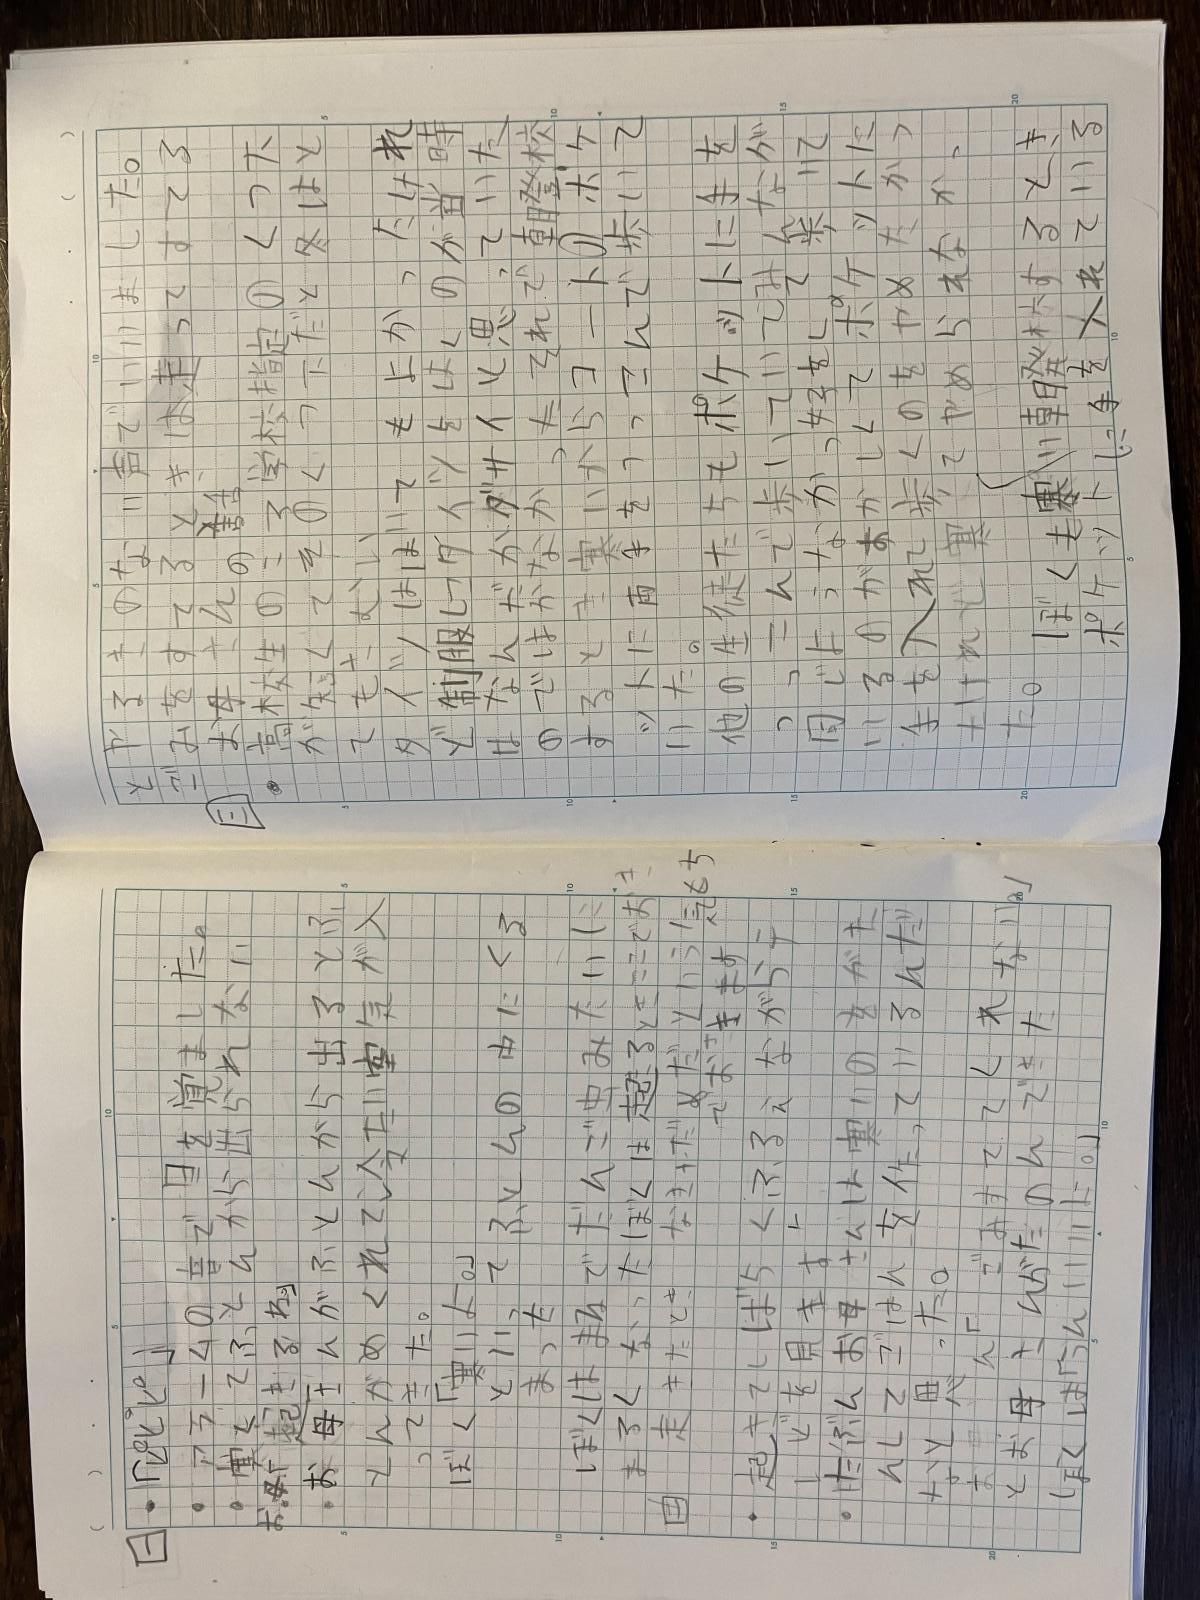 一
・「ピピピ」
・アラームの音で目を覚ました。
・寒くてふとんから出られない
・お母さんがふとんから出るとふ
とんがめくれて冷たい空気が入
ってきた。
ぼく「寒いよ。」
といってふとんの中にくる
まった
ぼくはまるでだんご虫みたいに
まるくなったぼくは起きるときここでおき
なきゃだめだという気もち
でおきます
二
・起きてしばらくふるえながらテ
レビを見ます。
・たぶんお母さんは寒いのをがま
んしてごはんを作っているんだ
なと思った。
とお母さんがたのんできた
ぼくは「うんいいよ。」
とやるきのない声でいいました。
ごみをすてるときは走ってすてる
三 お母さんの話
・高校生のころ学校指定のくつた
が短くてそのくつ下だと冬はと
てもさむい
タイツははいてもよかったけれ
ど制服にタイツをはくのが当時
はなんだかダサイと思っていた
のではかなかった それで朝登校
するとき寒いからコートのポケ
ットに両手をつっこんで歩いて
いた。
他の生徒たちもポケットに手を
つっこんで歩いていてみんなが
同じようなかっ好をして歩いて
いるのがおかしくてポケットに
手を入れて歩くのをやめたかっ
たけれど寒くてやめられなかっ
た。
ぼくも寒い朝登校するとき
ポケットに手を入れている